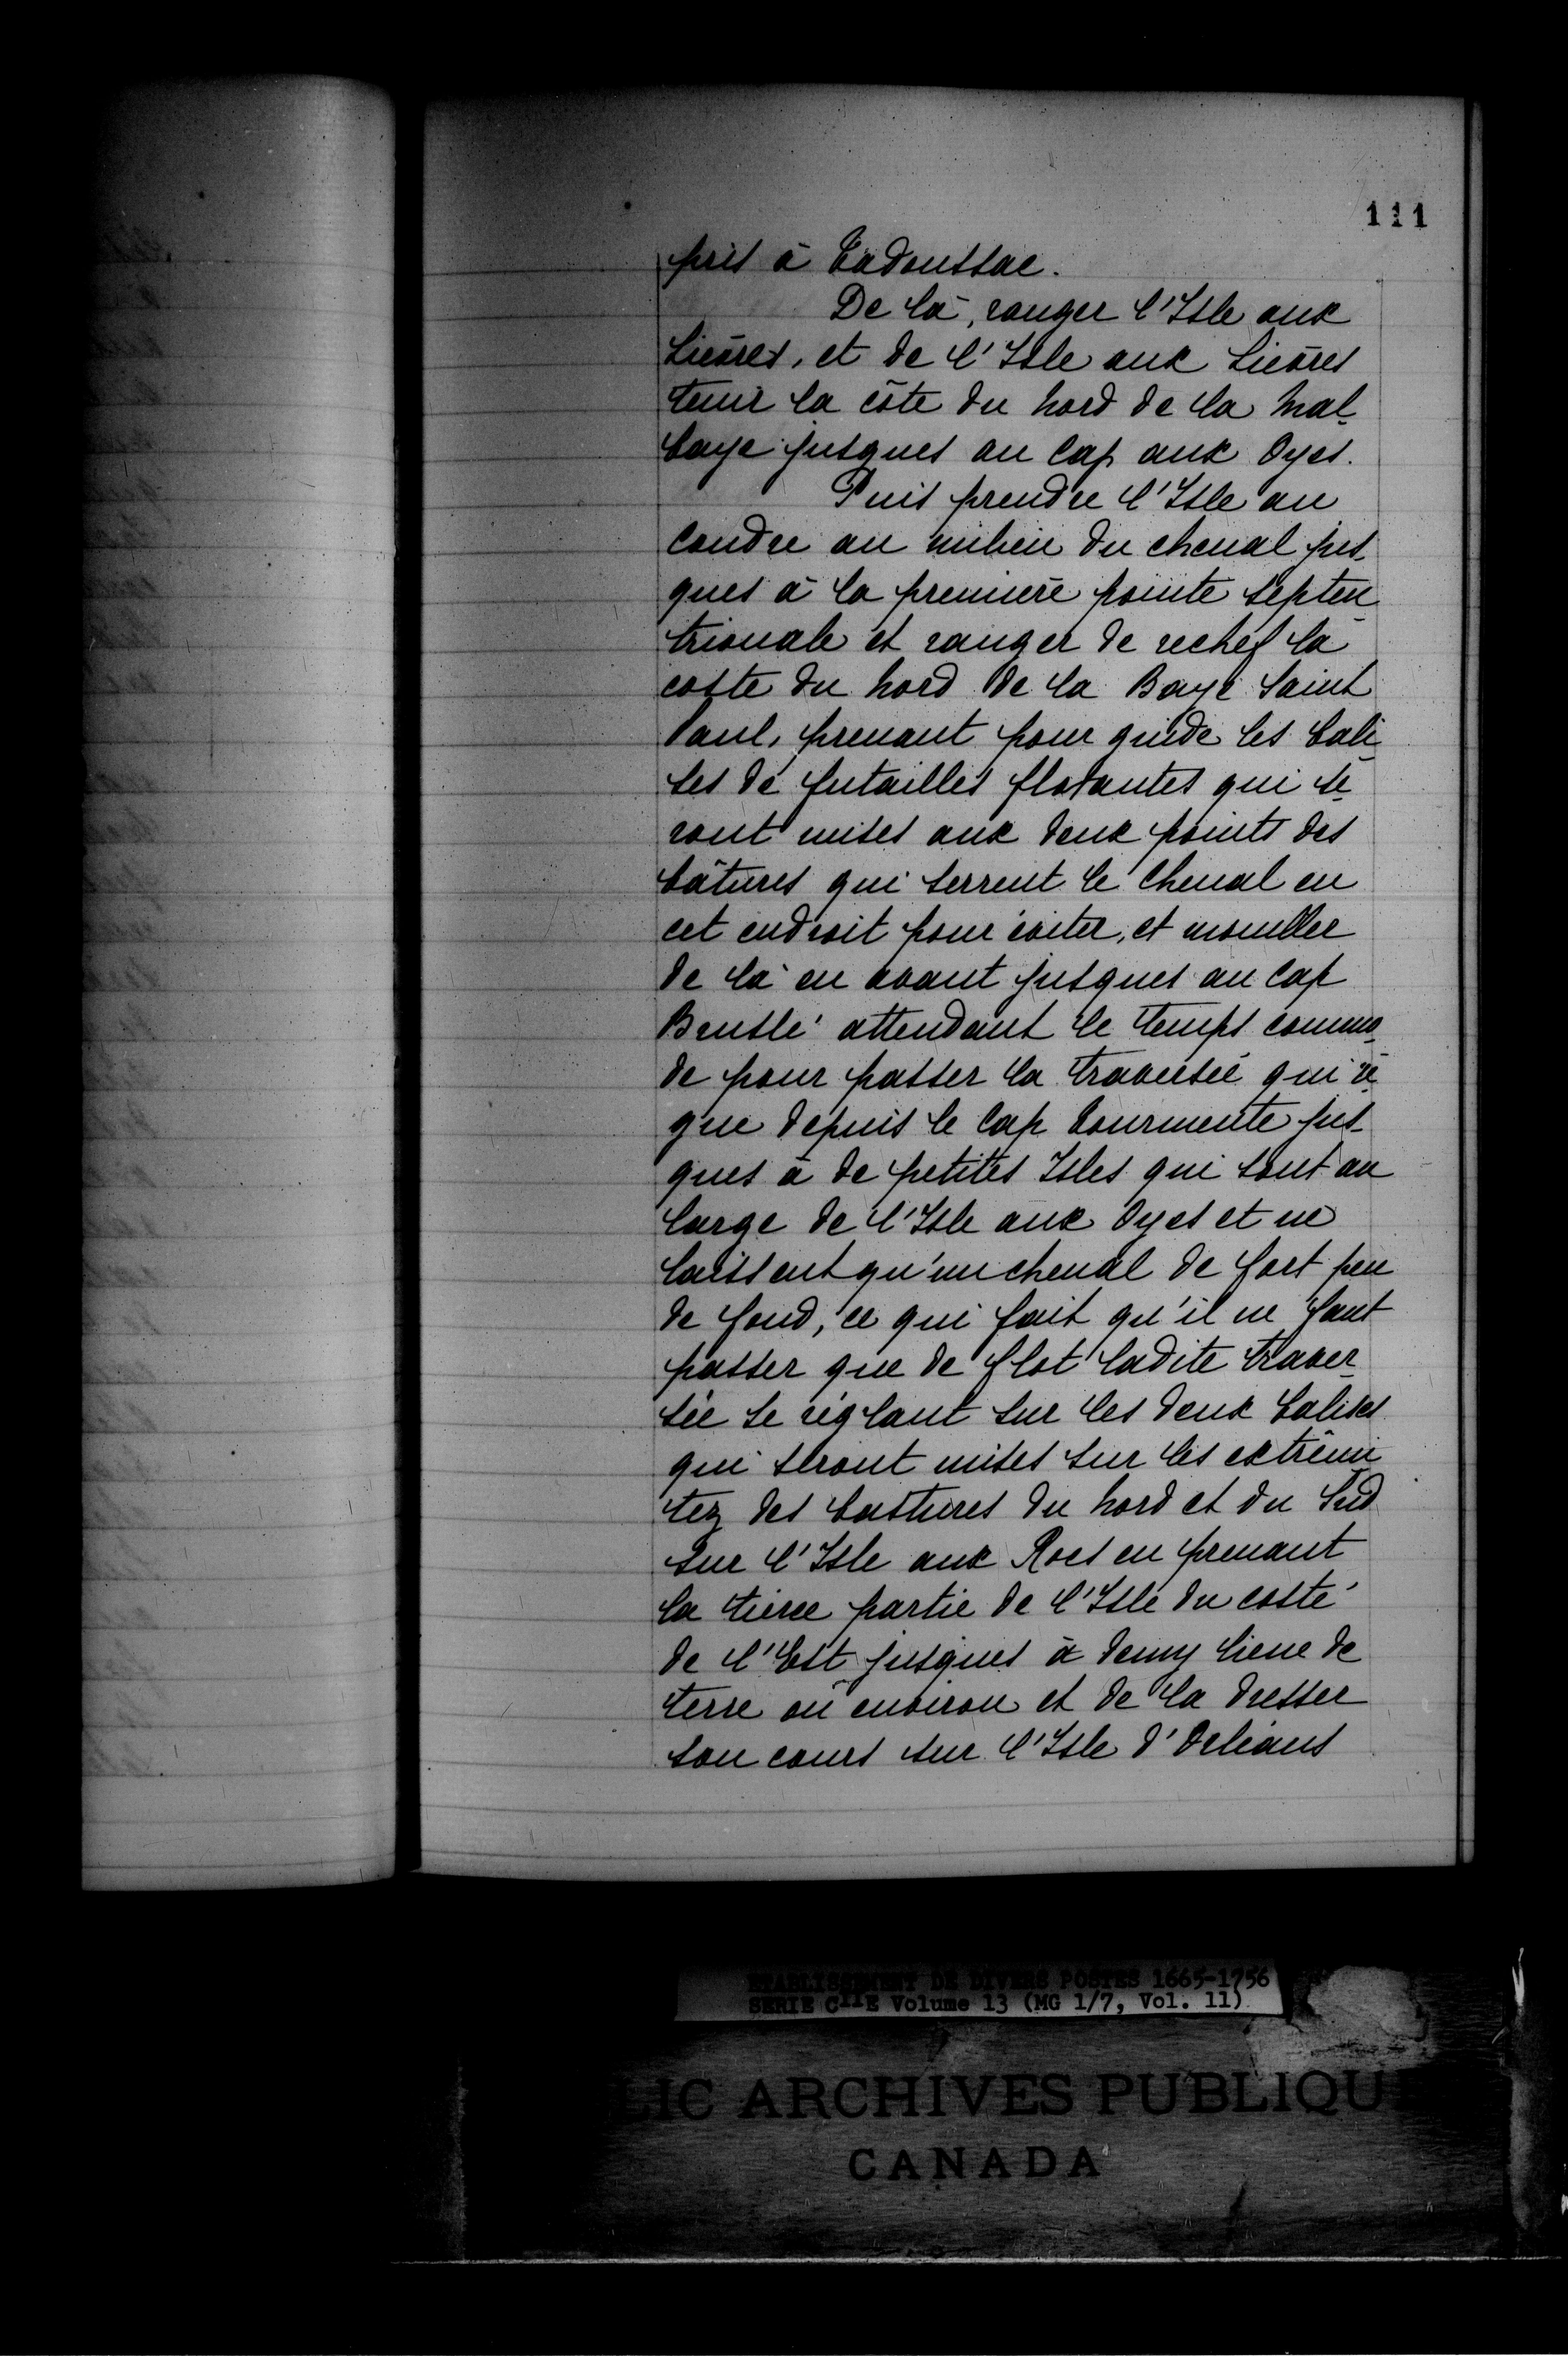 111
pris à Tadoussac.
De là, ranger l'Isle aux
Lièvres, et de l'Isle aux Lièvres
tenir la côte du nord de la Mal-
baye jusques au Cap aux Oyes.
Puis prendre l'Isle au
Coudre au milieu du chenal jus-
ques à la première pointe septen-
trionale et ranger de rechef la
coste du nord de la Baye Saint
Paul, prenant pour guide les bali-
ses de futailles flotantes qui se-
ront mises aux deux points des
bâtures qui serrent le chenal en
cet endroit pour éviter, et mouiller
de là en avant jusques au Cap
Bruslé attendant le temps commo-
de pour passer la traversée qui ré-
gne depuis le Cap Tourmente jus-
ques à de petites Isles qui sont au
large de l'Isle aux Oyes et ne
laissent qu'un chenal de fort peu
de fond, ce qui fait qu'il ne faut
passer que de flot ladite traver-
sée se réglant sur les deux balises
qui seront mises sur les extrémi-
tez des bastures du nord et du Sud
sur l'Isle aux Rocs en prenant
la tierce partie de l'Isle du costé
de l'Est jusques à demy lieue de
terre ou environ et de la dresser
son cours sur l'Isle d'Orléans
ETABLISSEMENT DE DIVERS POSTES 1665-1756
SERIE C11E Volume 13 (MG 1/7, Vol. 11)
LIC ARCHIVES PUBLIQU
CANADA